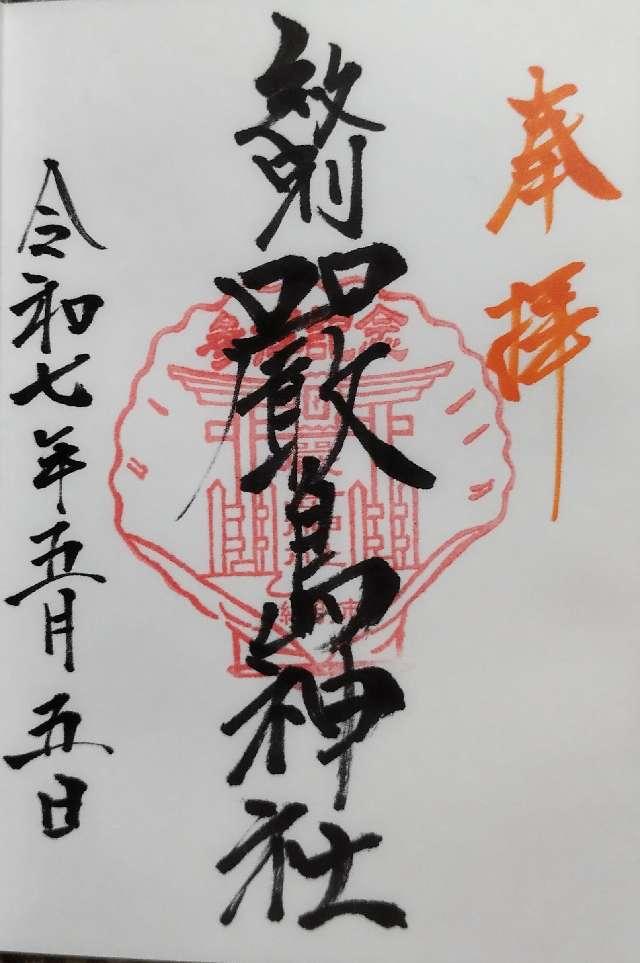 奉拝
紋別
嚴島神社
令和七年五月五日